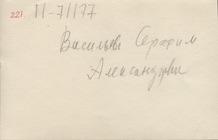 221. П-71177
Васильев Серафим
Александрович